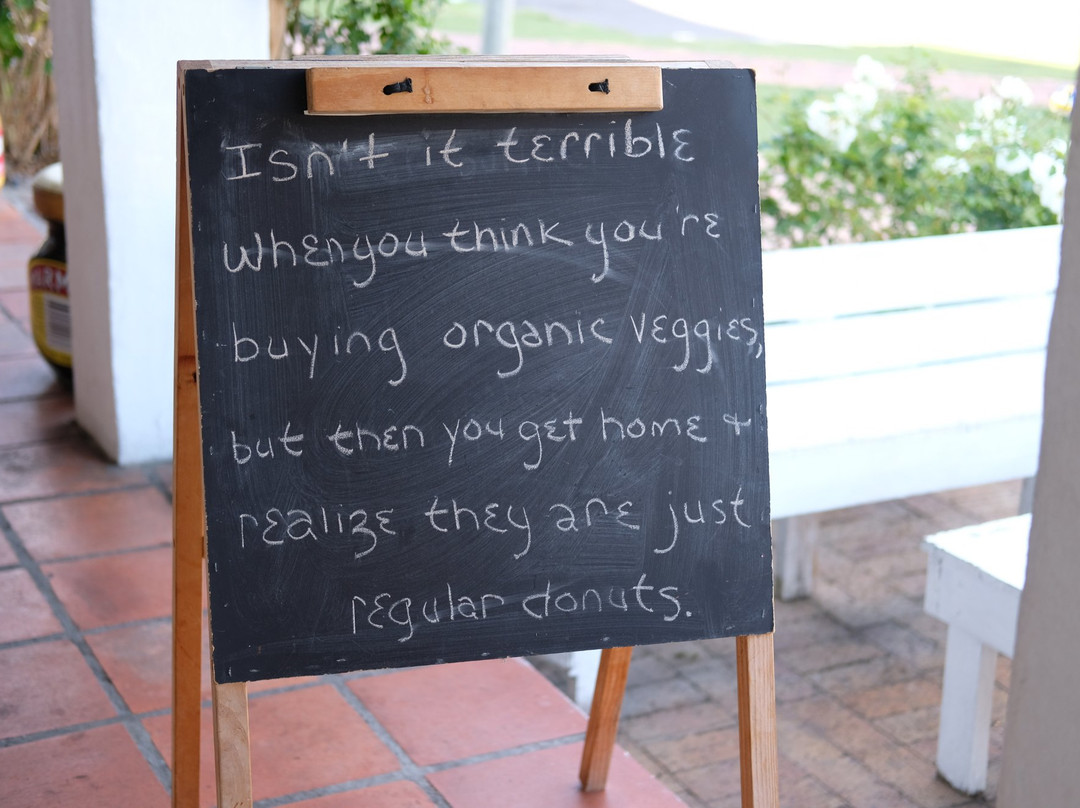 Isn't it terrible
when you think you're
buying organic veggies,
but then you get home +
realize they are just
regular donuts.